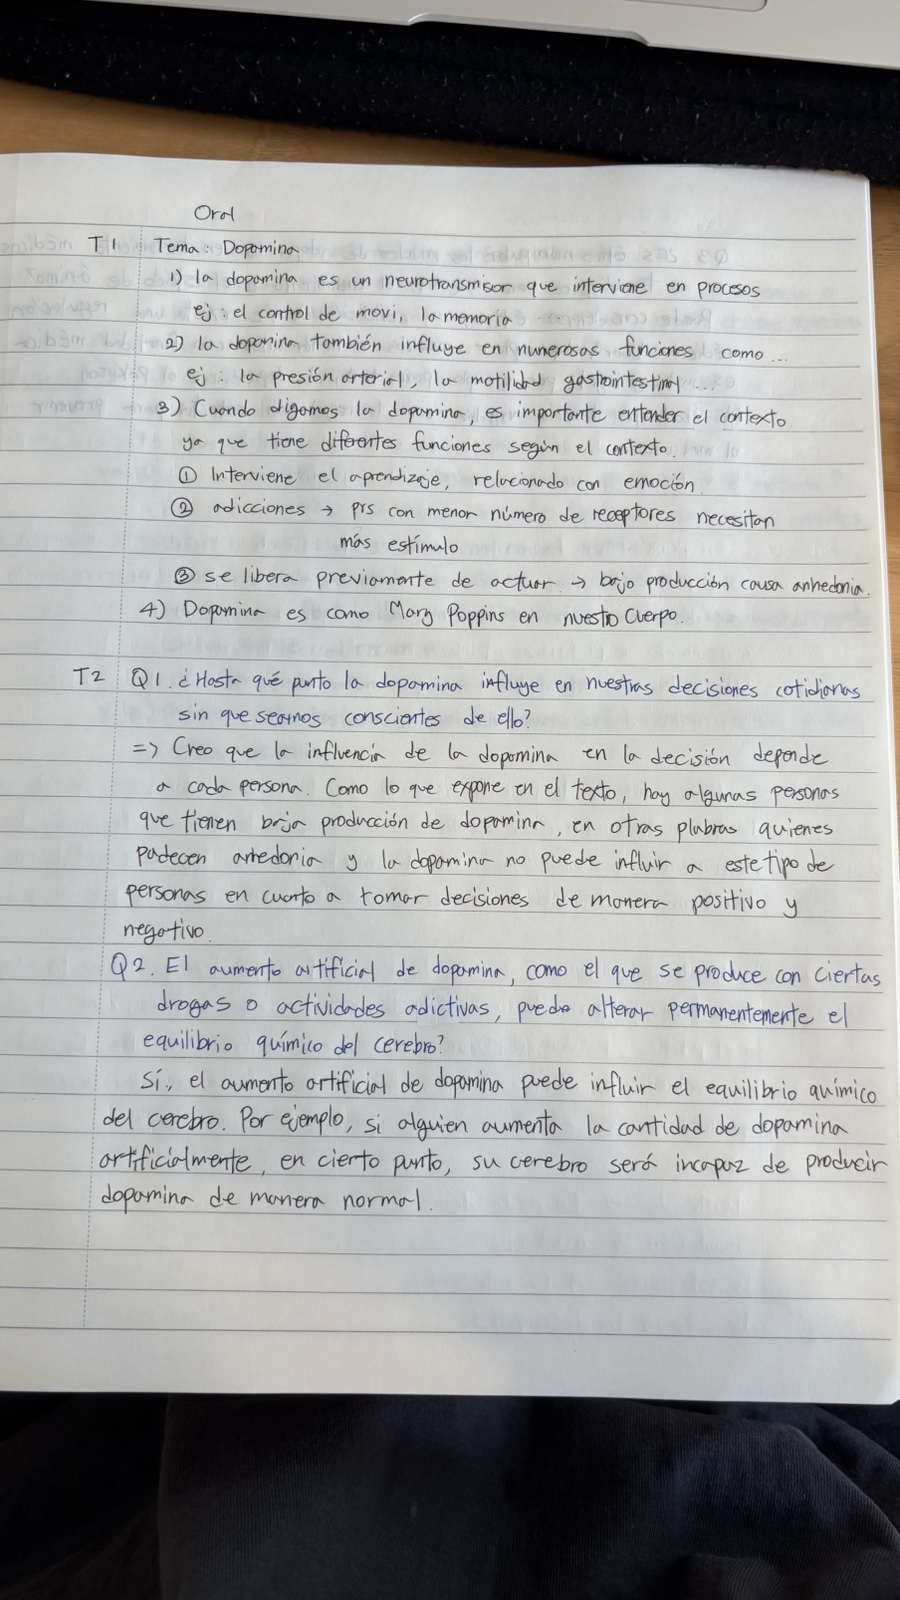 Oral
T1 Tema: Dopamina
1) la dopamina es un neurotransmisor que interviene en procesos
ej: el control de movi, la memoria ...
2) la dopamina también influye en numerosas funciones como...
ej: la presión arterial, la motilidad gastrointestinal ...
3) Cuando digamos la dopamina, es importante entender el contexto
ya que tiene diferentes funciones según el contexto.
① Interviene el aprendizaje, relacionado con emoción.
② adicciones → prs con menor número de receptores necesitan
más estímulo
③ se libera previamente de actuar → bajo producción causa anhedonia.
4) Dopamina es como Mary Poppins en nuestro Cuerpo.
T2 Q1. ¿Hasta qué punto la dopamina influye en nuestras decisiones cotidianas
sin que seamos conscientes de ello?
=> Creo que la influencia de la dopamina en la decisión depende
a cada persona. Como lo que expone en el texto, hay algunas personas
que tienen baja producción de dopamina, en otras plabras quienes
padecen anhedonia y la dopamina no puede influir a este tipo de
personas en cuanto a tomar decisiones de manera positivo y
negativo.
Q2. El aumento artificial de dopamina, como el que se produce con ciertas
drogas o actividades adictivas, puede alterar permanentemente el
equilibrio químico del cerebro?
Sí, el aumento artificial de dopamina puede influir el equilibrio químico
del cerebro. Por ejemplo, si alguien aumenta la cantidad de dopamina
artificialmente, en cierto punto, su cerebro será incapaz de producir
dopamina de manera normal.